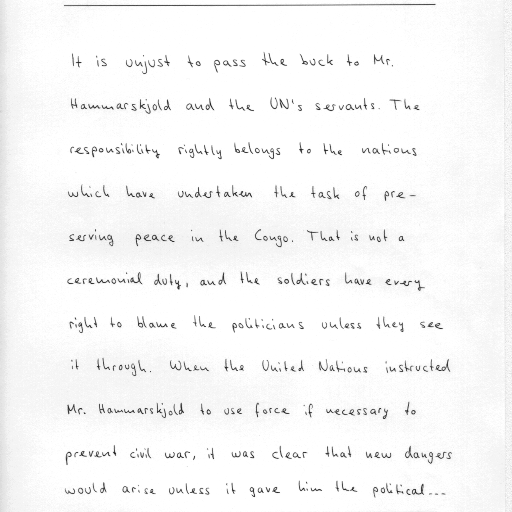 It is unjust to pass the buck to Mr.
Hammarskjold and the UN's servants. The
responsibility rightly belongs to the nations
which have undertaken the task of pre-
serving peace in the Congo. That is not a
ceremonial duty, and the soldiers have every
right to blame the politicians unless they see
it through. When the United Nations instructed
Mr. Hammarskjold to use force if necessary to
prevent civil war, it was clear that new dangers
would arise unless it gave him the political...